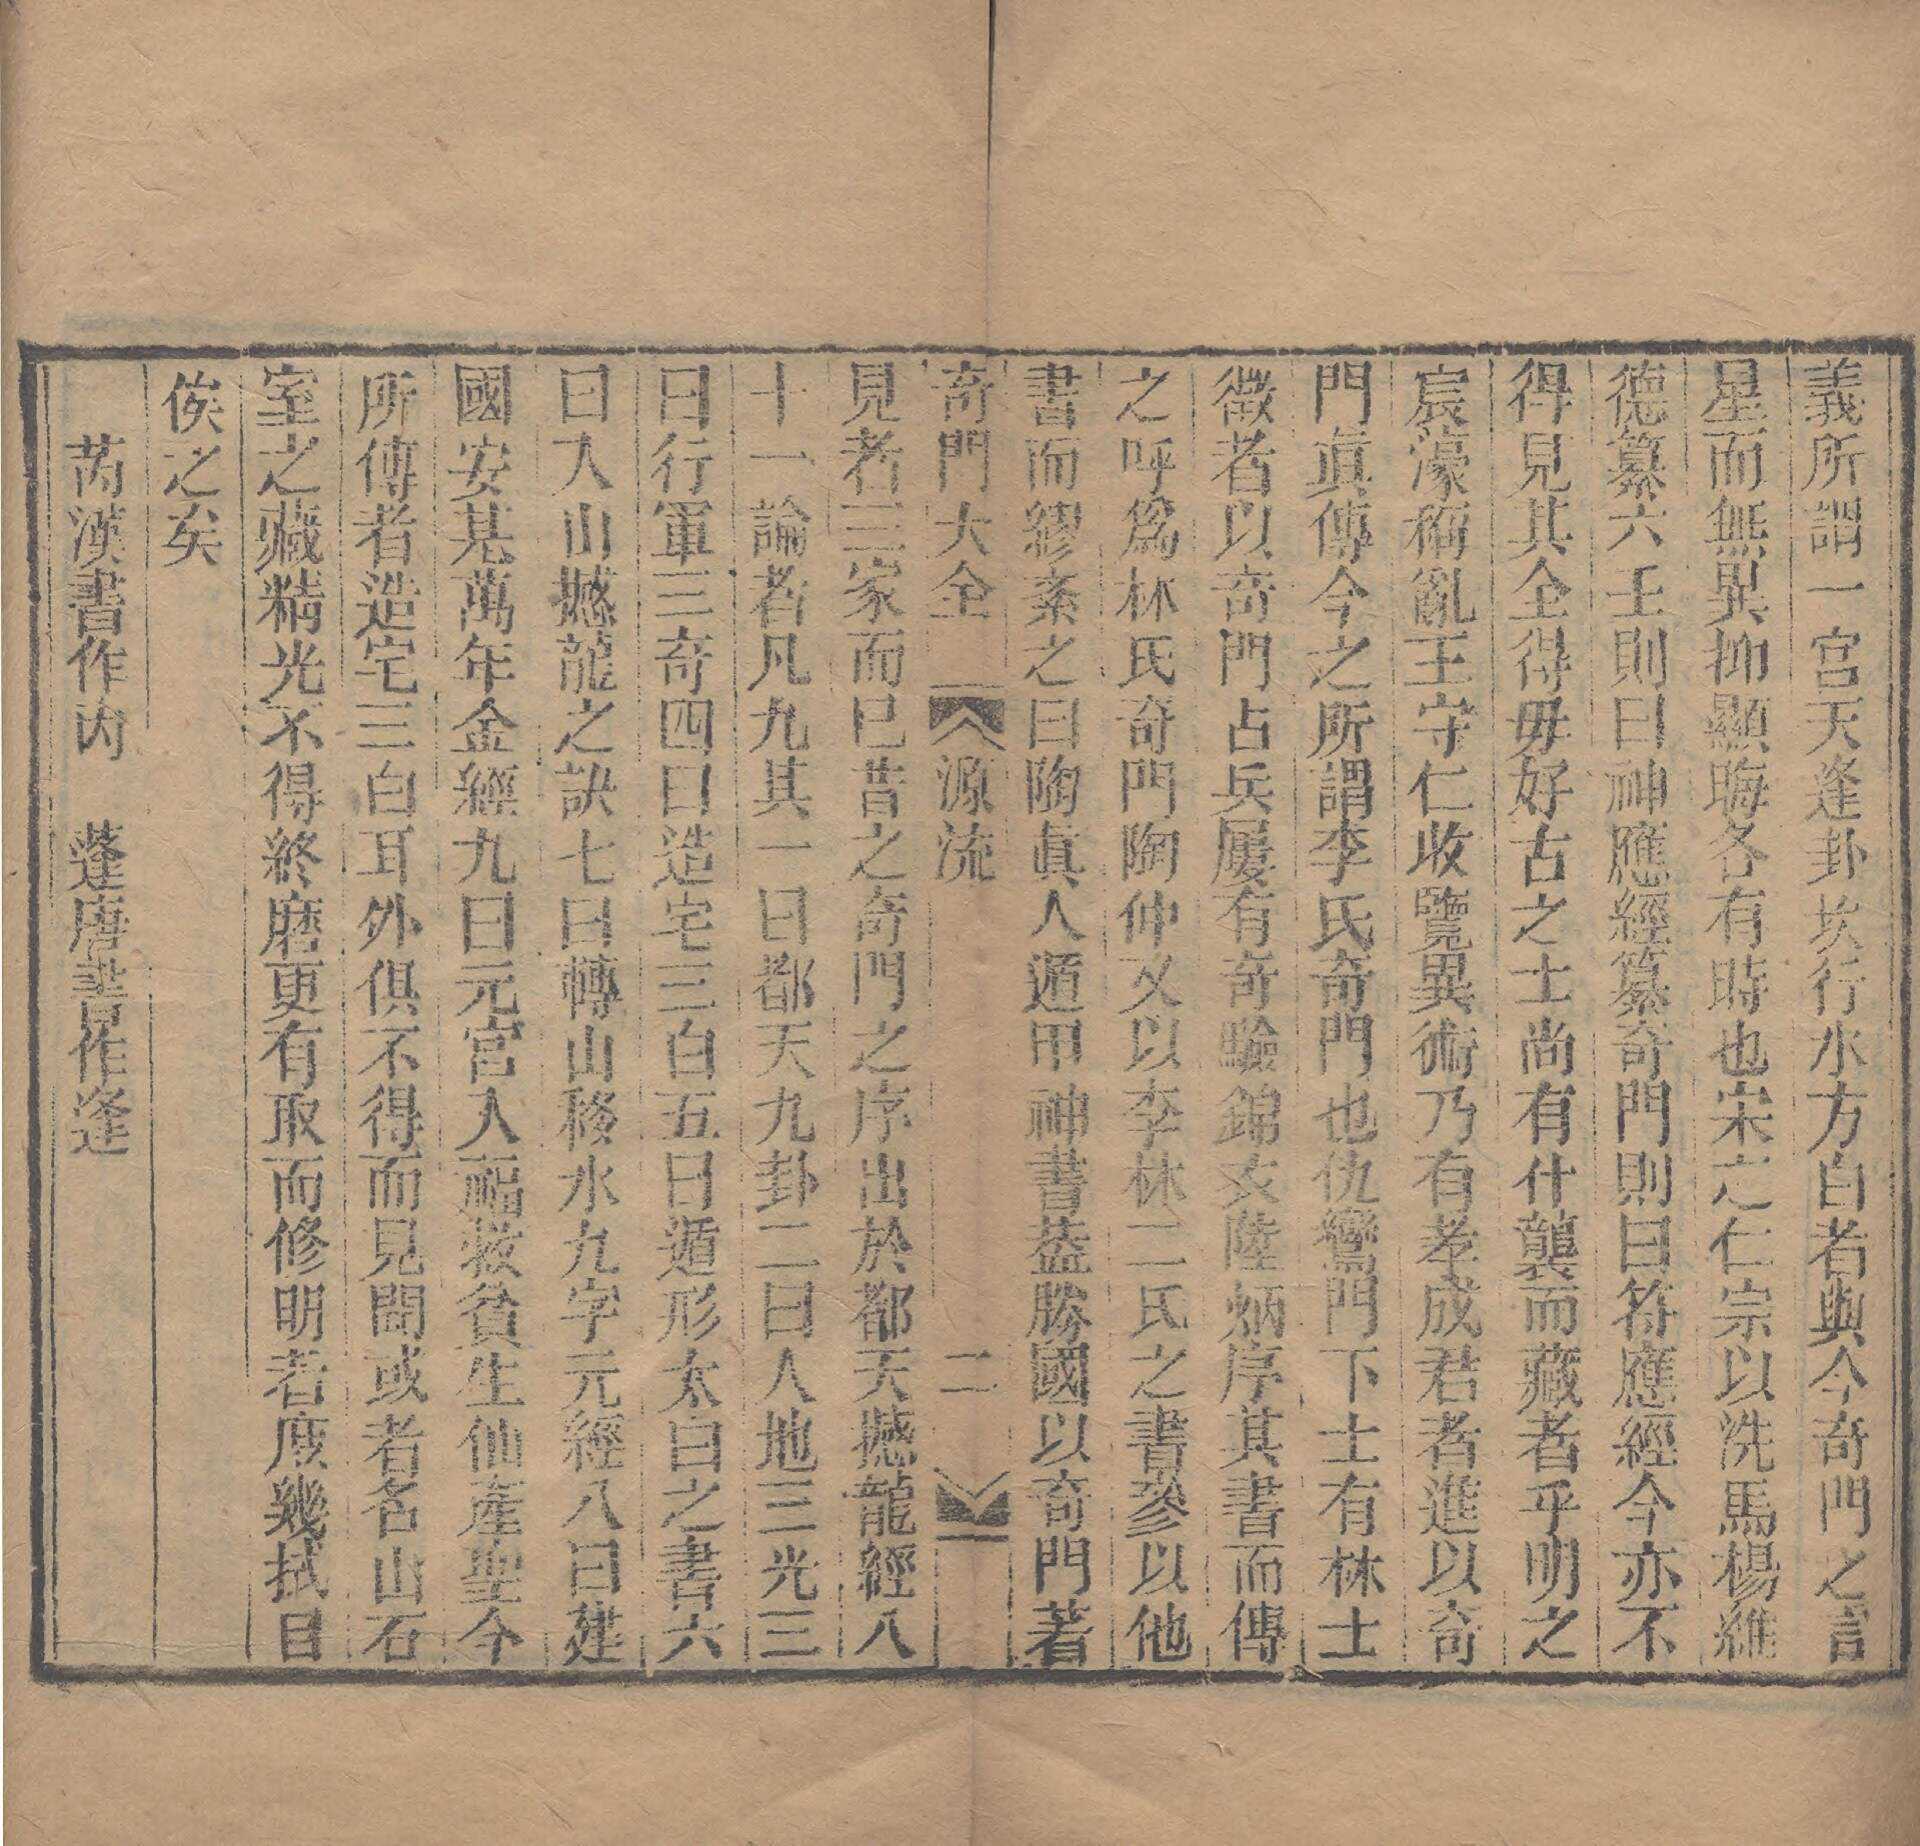 義所謂一宮天逢卦坎行水方白者與今奇門之言
星而無異抑顯晦各有時也宋之仁宗以洗馬楊維
德纂六壬則曰神應經纂奇門則曰符應經今亦不
得見其全得毋好古之士尚有什襲而藏者乎明之
宸濠稱亂王守仁收覽異術乃有孝成君者進以奇
門眞傳今之所謂李氏奇門也仇鸞門下士有林士
徵者以奇門占兵屢有奇驗錦衣陸炳序其書而傳
之呼爲林氏奇門陶仲文以李林二氏之書參以他
書而繆紊之曰陶眞人遁甲神書葢勝國以奇門著
奇門大全 源流 二
見者三家而已昔之奇門之序出於都天撼龍經八
十一論者凡九其一曰都天九卦二曰人地三光三
曰行軍三奇四曰造宅三白五曰遁形太白之書六
曰入山撼龍之訣七曰轉山移水九字元經八曰建
國安基萬年金經九曰元宮入福救貧生仙產聖今
所傳者造宅三白耳外俱不得而見聞或者名山石
室之藏精光不得終磨更有取而修明者庶幾拭目
俟之矣
芮漢書作內 蓬唐書作逢